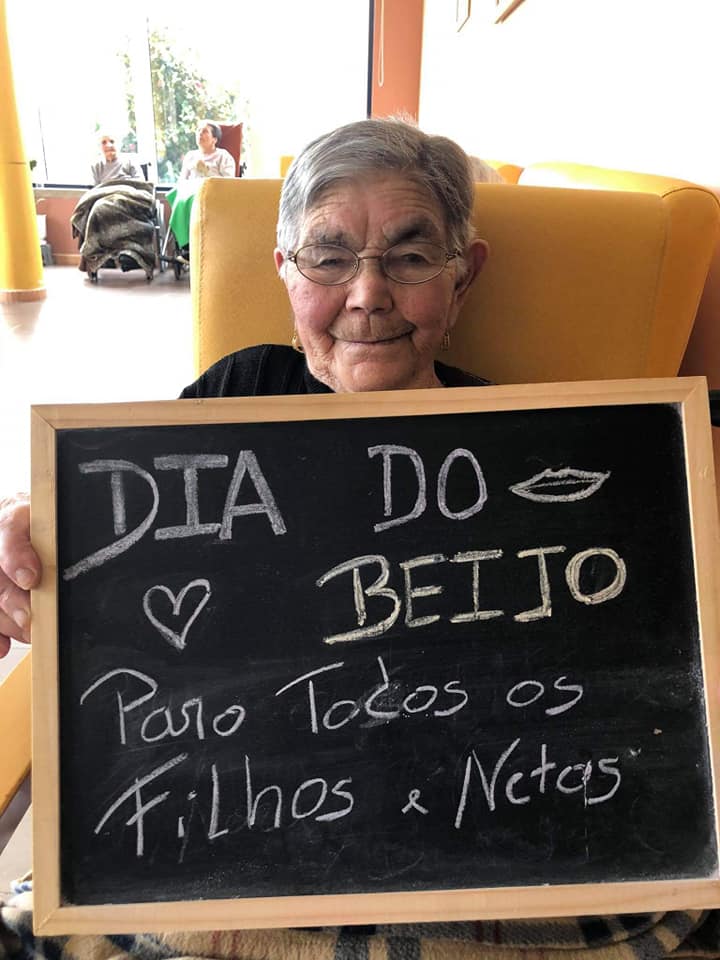 DIA DO
BEIJO
Para Todos os
Filhos e Netos